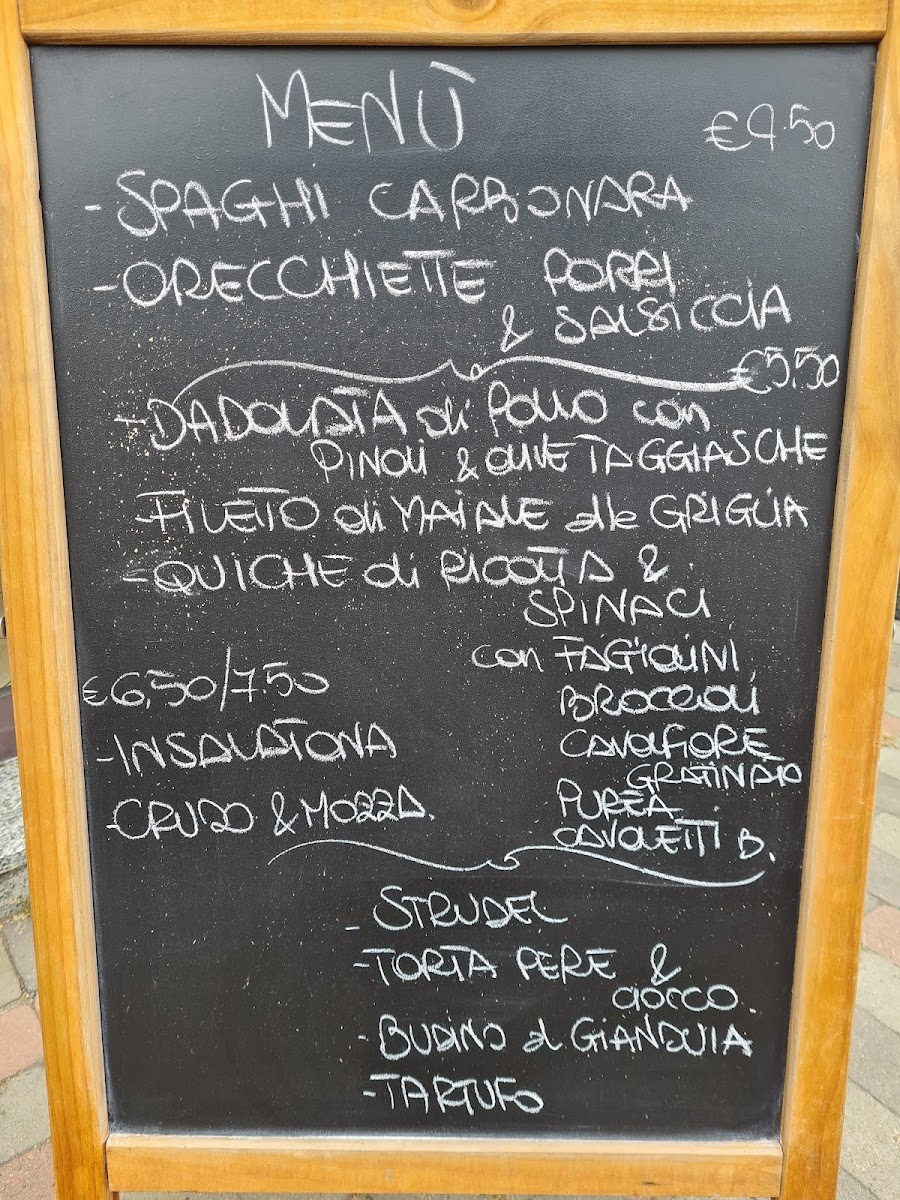 MENÙ
€9.50
- SPAGHI CARBONARA
- ORECCHIETTE PORRI
& SALSICCIA
€5.50
- DADOLATA di Pollo con
PINOLI & OLIVE TAGGIASCHE
- FILETTO di MAIALE alla GRIGLIA
- QUICHE di RICOTTA &
SPINACI
con FAGIOLINI
BROCCOLI
CAVOLFIORE
GRATINATO
PUREA
CAVOLETTI B.
€6,50/7.50
- INSALATONA
- CRUDO & MOZZA.
- STRUDEL
- TORTA PERE &
CIOCCO.
- BUDINO al GIANDUIA
- TARTUFO